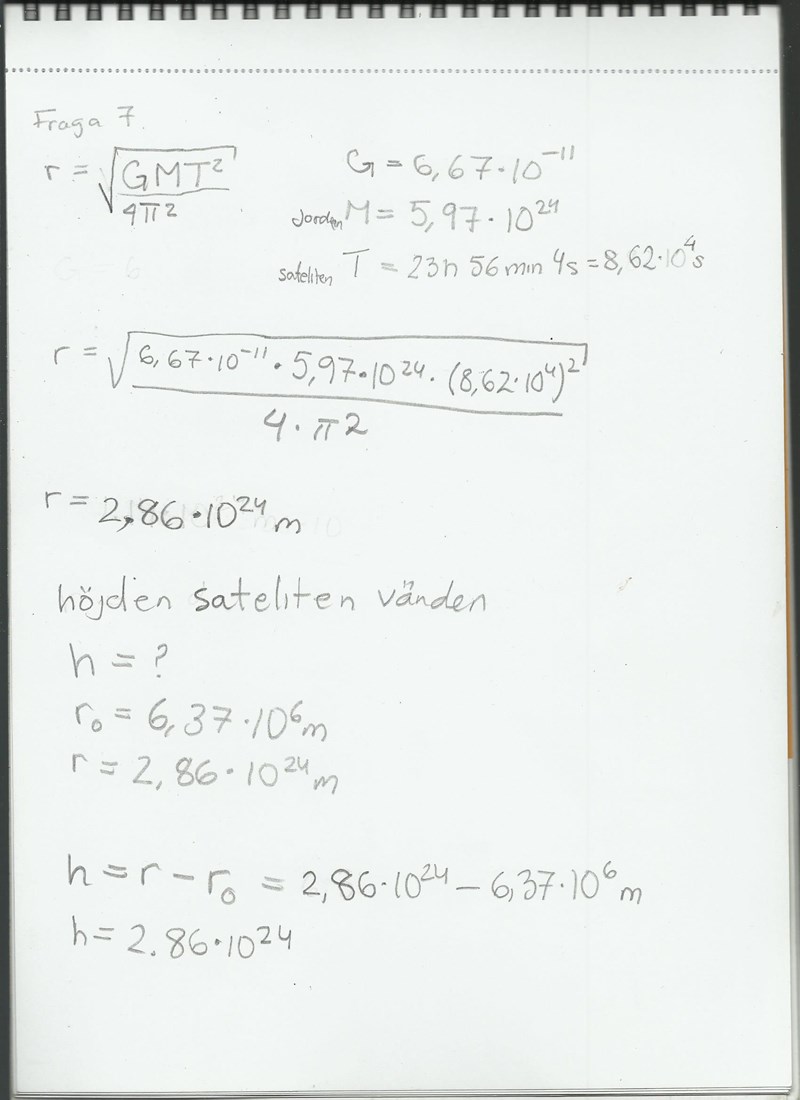 Fraga 7
r = √GMT²/4π² G = 6,67·10⁻¹¹
Jorden M = 5,97·10²⁴
sateliten T = 23h 56min 4s = 8,62·10⁴s
r = √6,67·10⁻¹¹·5,97·10²⁴·(8,62·10⁴)²/4·π2
r = 2,86·10²⁴m
höjden sateliten vänden
h = ?
r₀ = 6,37·10⁶m
r = 2,86·10²⁴m
h = r - r₀ = 2,86·10²⁴ - 6,37·10⁶m
h = 2.86·10²⁴